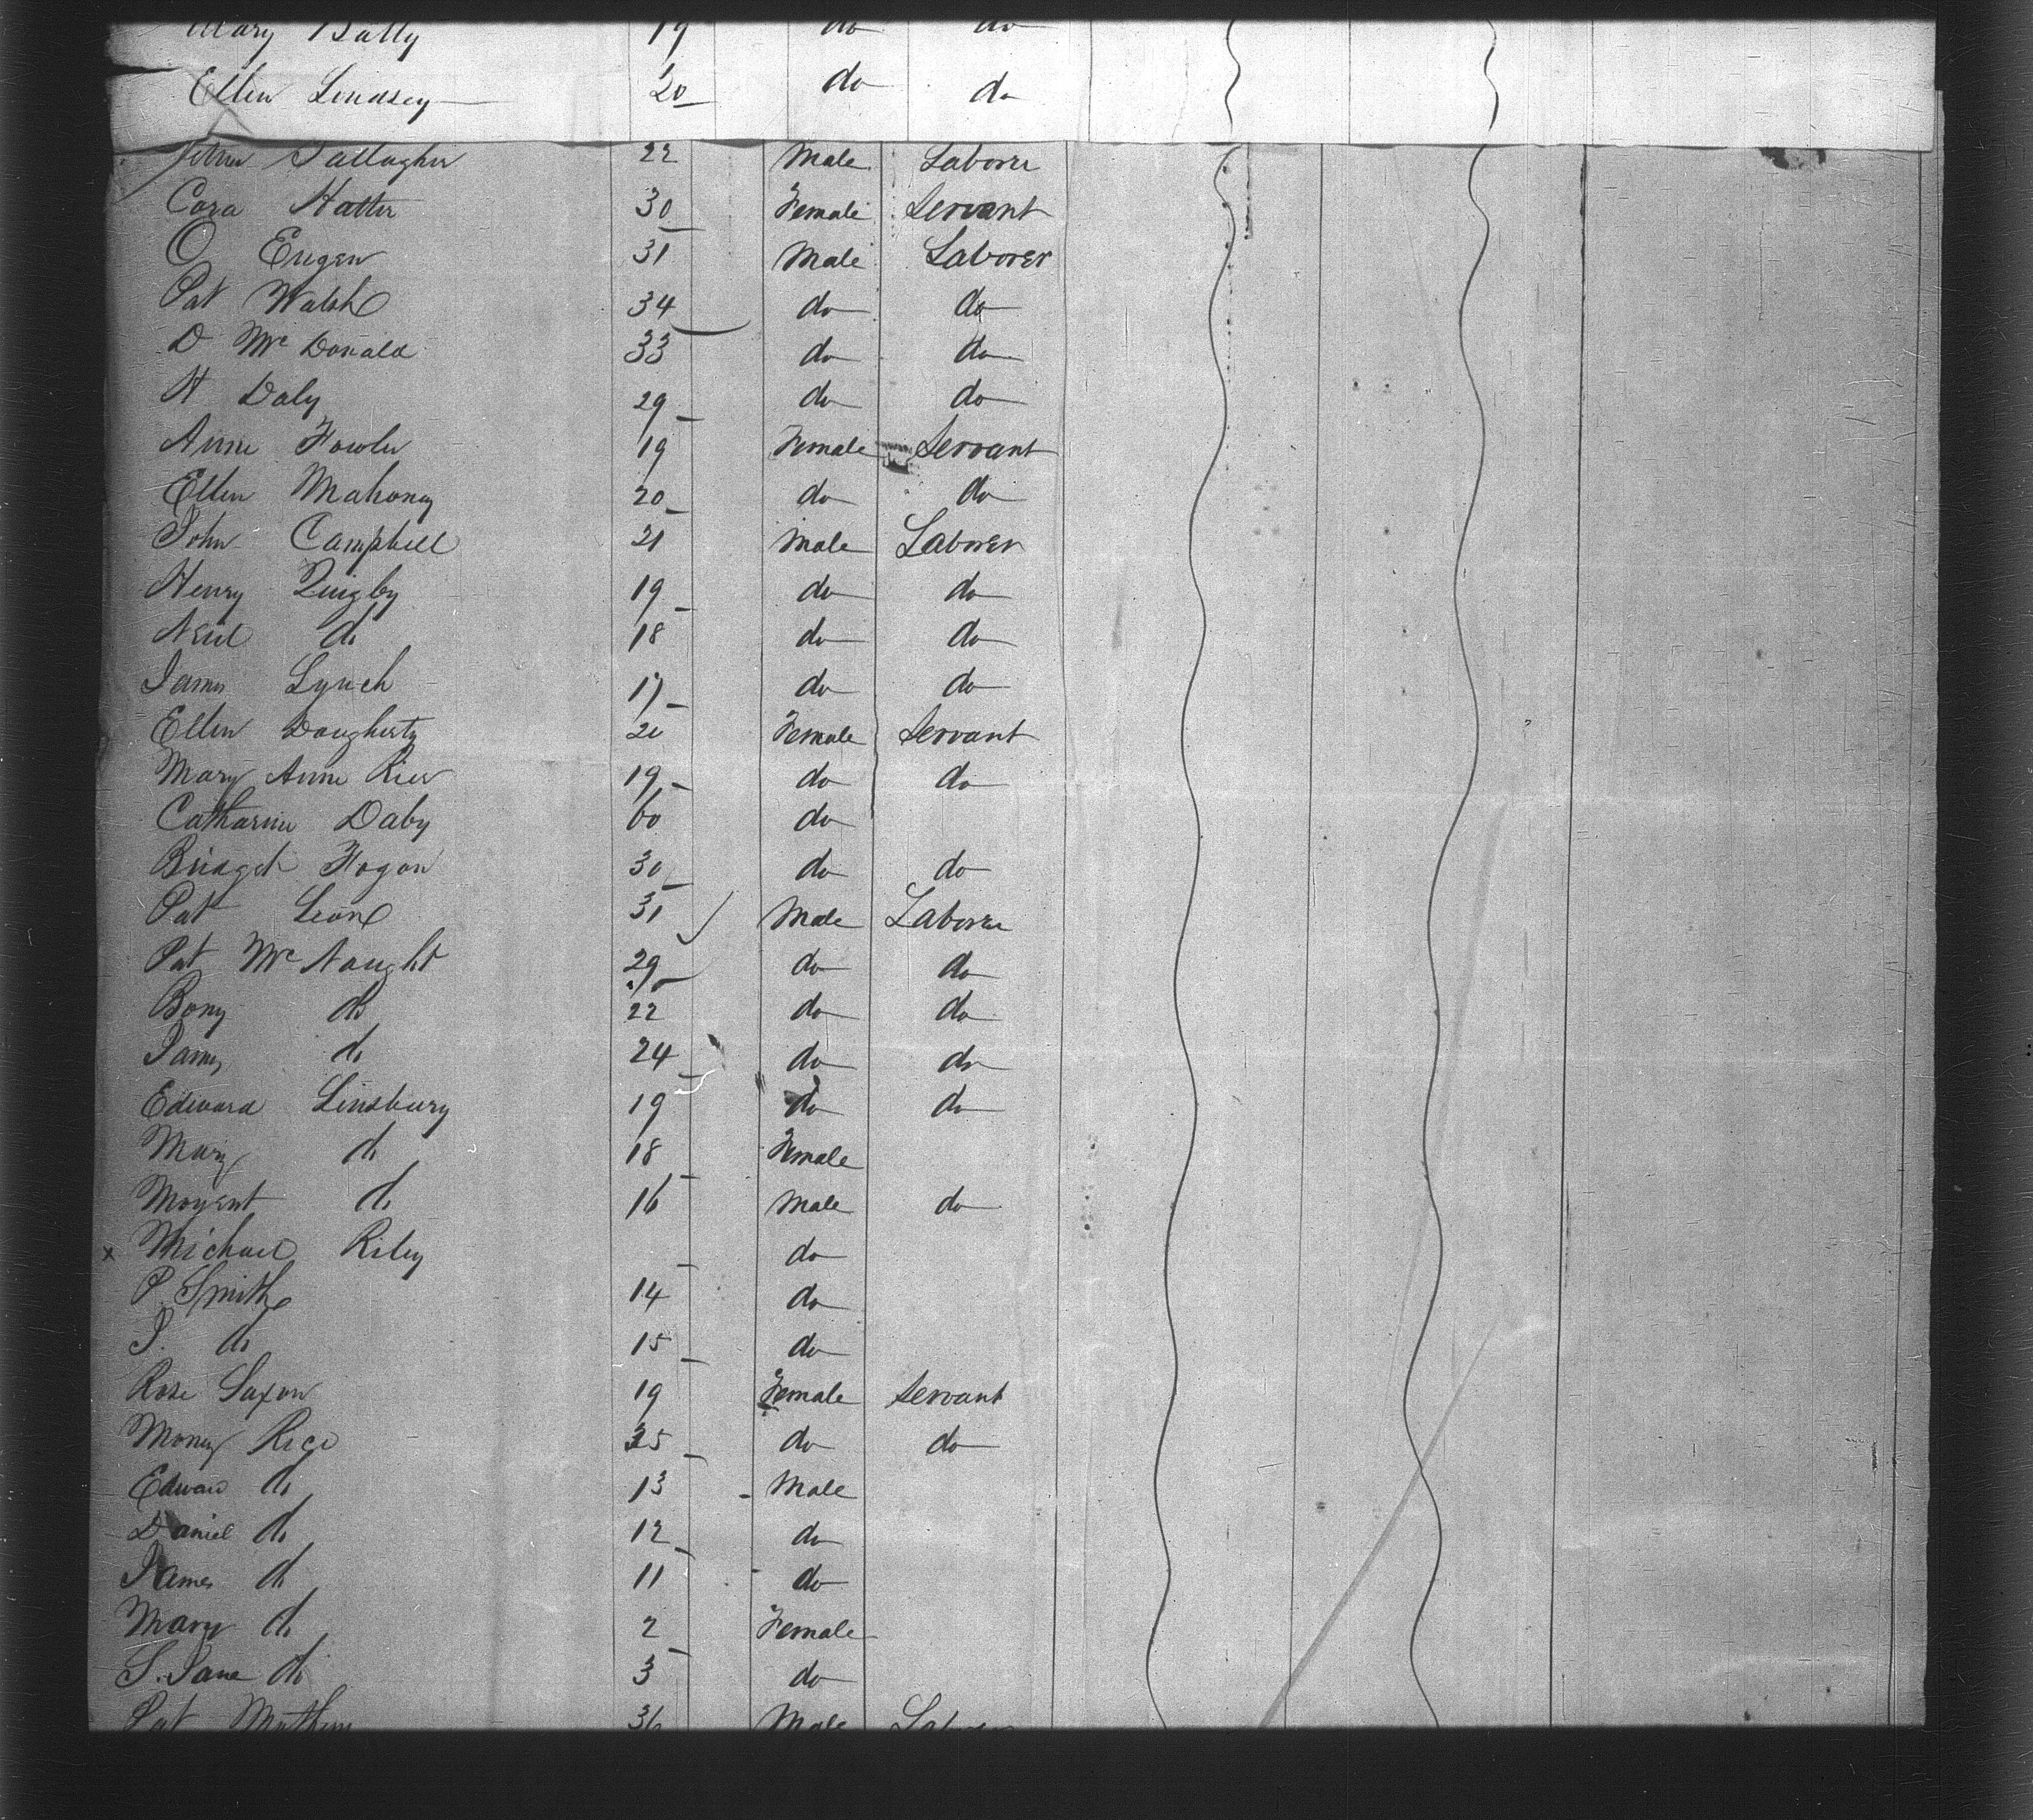 Mary Batty 19 do do
Ellen Lindsey 20 do do
Gallagher 22 Male Laborer
Cora Hatter 30 Female Servant
O Eugen 31 Male Laborer
Pat Walsh 34 do do
D McDonald 33 do do
H Daly 29 do do
Anne Fowler 19 Female Servant
Ellen Mahony 20 do do
John Campbell 21 Male Laborer
Henry Quigby 19 do do
Neil do 18 do do
James Lynch 17 do do
Ellen Dougherty 20 Female Servant
Mary Anne Rier 19 do do
Catharine Daby 60 do
Bridget Hogan 30 do do
Pat Leone 31 Male Laborer
Pat McNaught 29 do do
Bony do 22 do do
James do 24 do do
Edward Linsbury 19 do do
Mary do 18 Female
Moyent do 16 Male do
x Michael Riley do
P. Smith 14 do
J. do 15 do
Rose Saxon 19 Female Servant
Money Rice 35 do do
Edward do 13 Male
Daniel do 12 do
James do 11 do
Mary do 2 Female
S. Jane do 3 do
Pat 36 Male Laborer